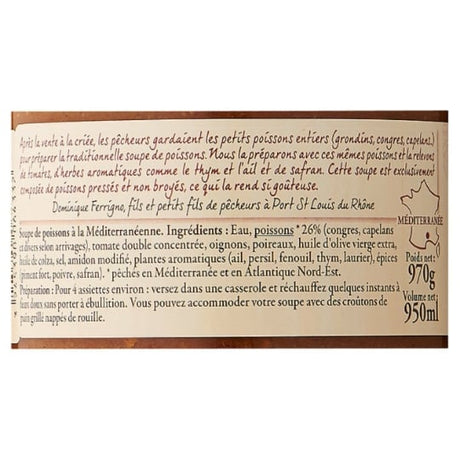 Après la vente à la criée, les pêcheurs gardaient les petits poissons entiers (grondins, congres, capelans.)
pour préparer la traditionnelle soupe de poissons. Nous la préparons avec ces mêmes poissons et la relevons
de tomates, d'herbes aromatiques comme le thym et l'ail et de safran. Cette soupe est exclusivement
composée de poissons pressés et non broyés, ce qui la rend si goûteuse.
Dominique Ferrigno, fils et petits fils de pêcheurs à Port St Louis du Rhône
MÉDITERRANÉE
Soupe de poissons à la Méditerranéenne. Ingrédients : Eau, poissons * 26% (congres, capelans
et divers selon arrivages), tomate double concentrée, oignons, poireaux, huile d'olive vierge extra,
huile de colza, sel, amidon modifié, plantes aromatiques (ail, persil, fenouil, thym, laurier), épices
(piment fort, poivre, safran). * pêchés en Méditerranée et en Atlantique Nord-Est.
Préparation : Pour 4 assiettes environ : versez dans une casserole et réchauffez quelques instants à
feux doux sans porter à ébullition. Vous pouvez accommoder votre soupe avec des croûtons de
pain grillé nappés de rouille.
Poids net :
970g
Volume net :
950ml